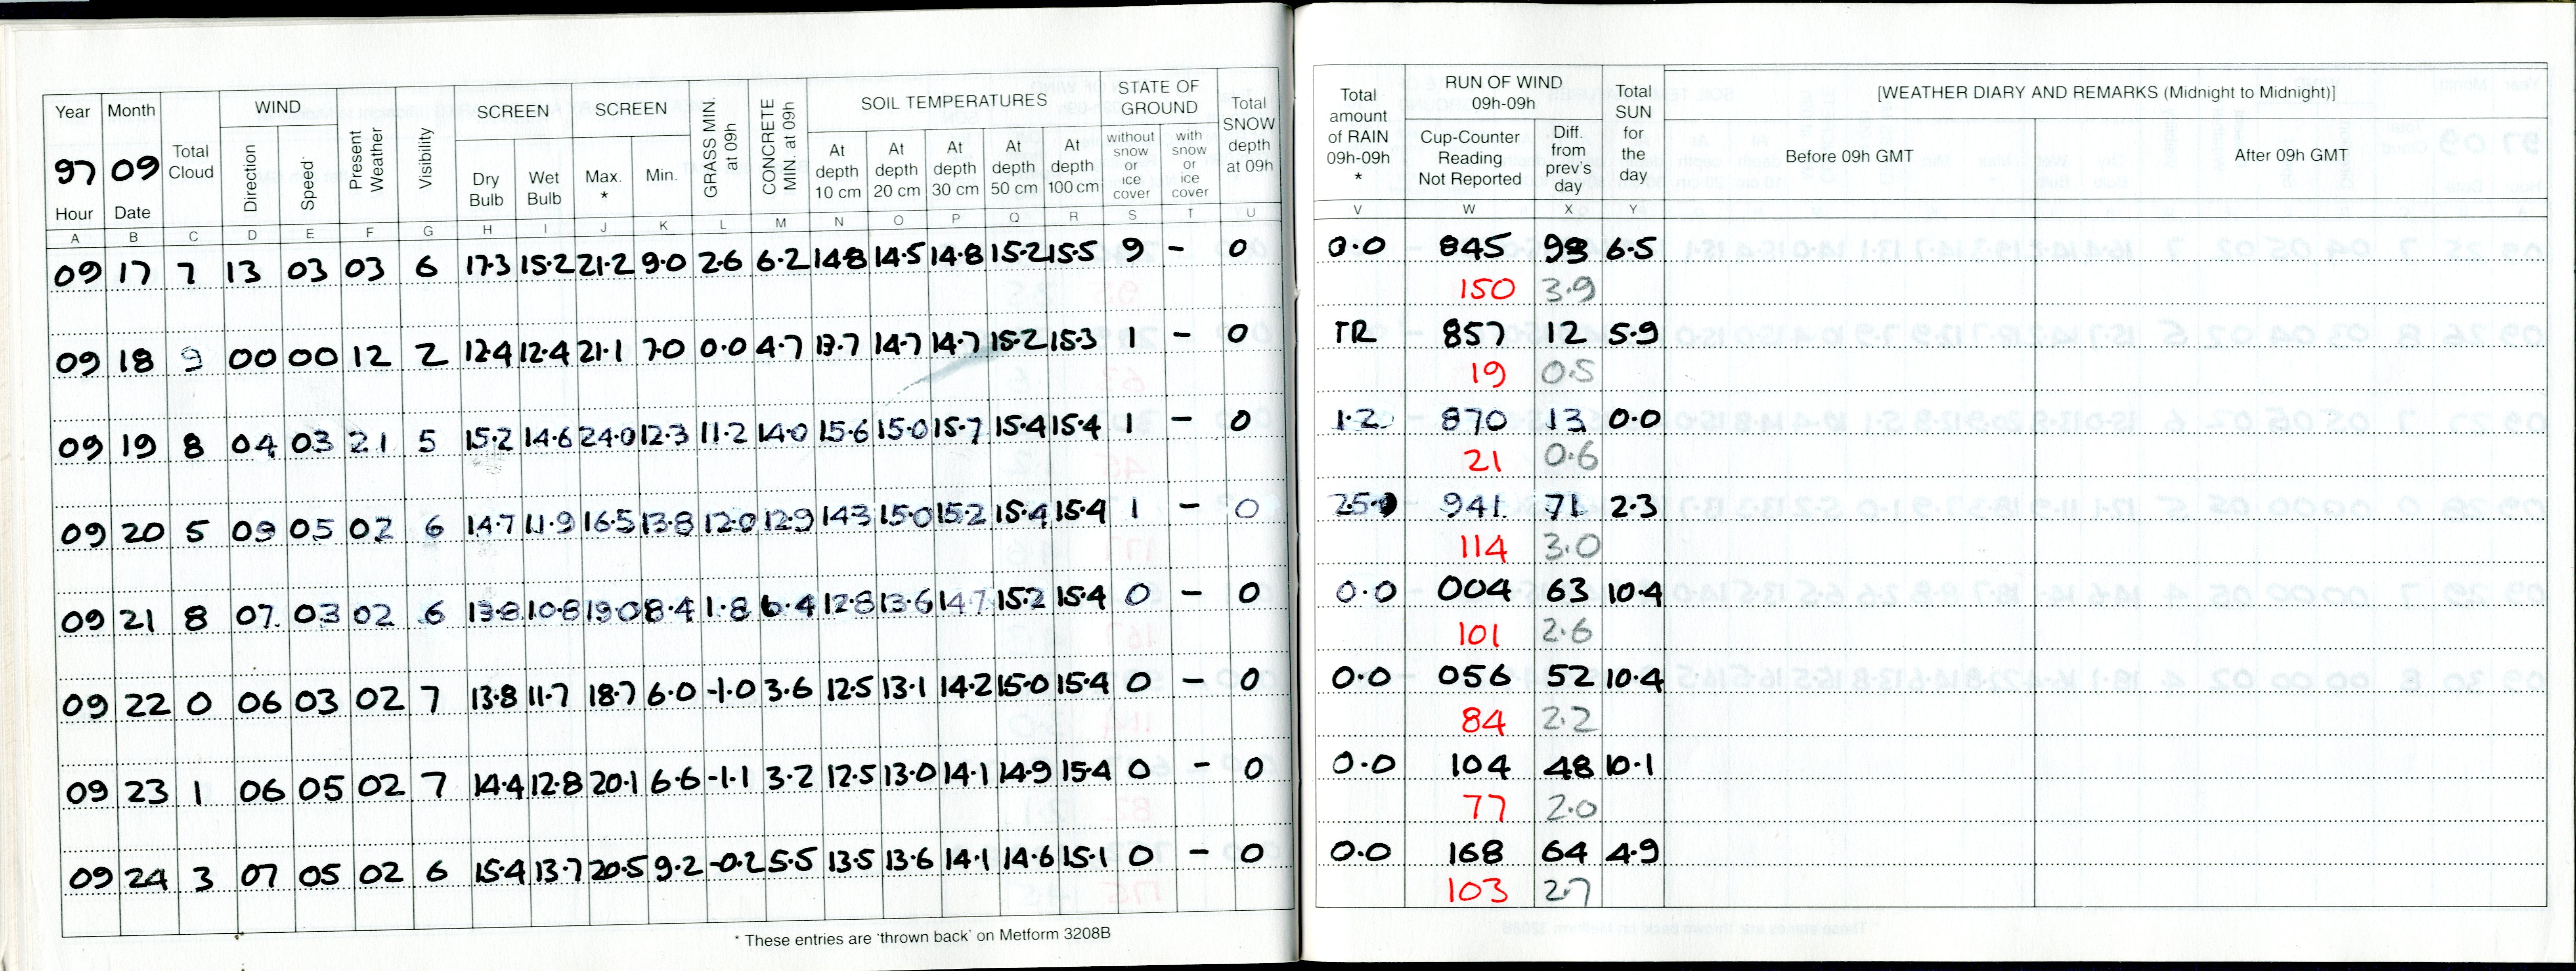 Year Month Total Cloud WIND Present Weather Visibility SCREEN SCREEN GRASS MIN. at 09h CONCRETE MIN. at 09h SOIL TEMPERATURES STATE OF GROUND Total SNOW depth at 09h
97 09 Direction Speed Dry Bulb Wet Bulb Max. * Min. At depth 10 cm At depth 20 cm At depth 30 cm At depth 50 cm At depth 100 cm without snow or ice cover with snow or ice cover
Hour Date
A B C D E F G H I J K L M N O P Q R S T U
09 17 7 13 03 03 6 17.3 15.2 21.2 9.0 2.6 6.2 14.8 14.5 14.8 15.2 15.5 9 - 0
09 18 9 00 00 12 2 12.4 12.4 21.1 7.0 0.0 4.7 13.7 14.7 14.7 15.2 15.3 1 - 0
09 19 8 04 03 21 5 15.2 14.6 24.0 12.3 11.2 14.0 15.6 15.0 15.7 15.4 15.4 1 - 0
09 20 5 09 05 02 6 14.7 11.9 16.5 13.8 12.0 12.9 14.3 15.0 15.2 15.4 15.4 1 - 0
09 21 8 07 03 02 6 13.8 10.8 19.0 8.4 1.8 6.4 12.8 13.6 14.7 15.2 15.4 0 - 0
09 22 0 06 03 02 7 13.8 11.7 18.7 6.0 -1.0 3.6 12.5 13.1 14.2 15.0 15.4 0 - 0
09 23 1 06 05 02 7 14.4 12.8 20.1 6.6 -1.1 3.2 12.5 13.0 14.1 14.9 15.4 0 - 0
09 24 3 07 05 02 6 15.4 13.7 20.5 9.2 -0.2 5.5 13.5 13.6 14.1 14.6 15.1 0 - 0
* These entries are 'thrown back' on Metform 3208B
Total amount of RAIN 09h-09h * RUN OF WIND 09h-09h Total SUN for the day [WEATHER DIARY AND REMARKS (Midnight to Midnight)]
Cup-Counter Reading Not Reported Diff. from prev's day Before 09h GMT After 09h GMT
V W X Y
0.0 845 98 6.5
150 3.9
TR 857 12 5.9
19 0.5
1.2 870 13 0.0
21 0.6
941 71 2.3
114 3.0
0.0 004 63 10.4
101 2.6
0.0 056 52 10.4
84 2.2
0.0 104 48 10.1
77 2.0
0.0 168 64 4.9
103 2.7